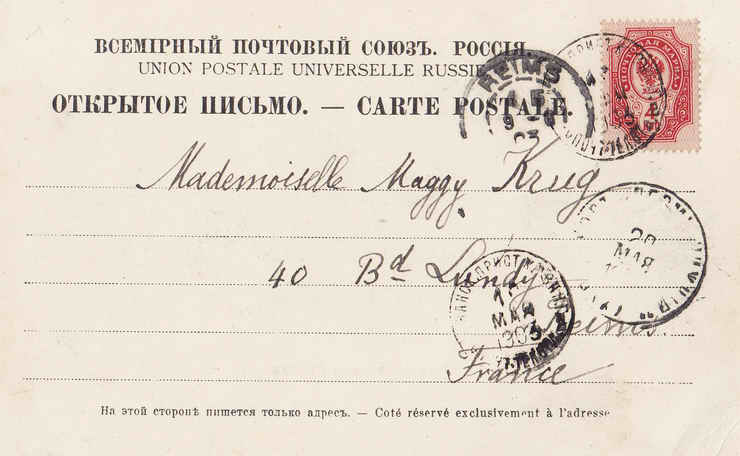 ВСЕМІРНЫЙ ПОЧТОВЫЙ СОЮЗЪ. РОССІЯ.
UNION POSTALE UNIVERSELLE RUSSIE
ОТКРЫТОЕ ПИСЬМО. — CARTE POSTALE.
REIMS
Mademoiselle Maggy Krug
40 Bd Lundy
20
МАЯ
МАЯ
1903
Reims
France
На этой сторонѣ пишется только адресъ. — Coté réservé exclusivement à l'adresse